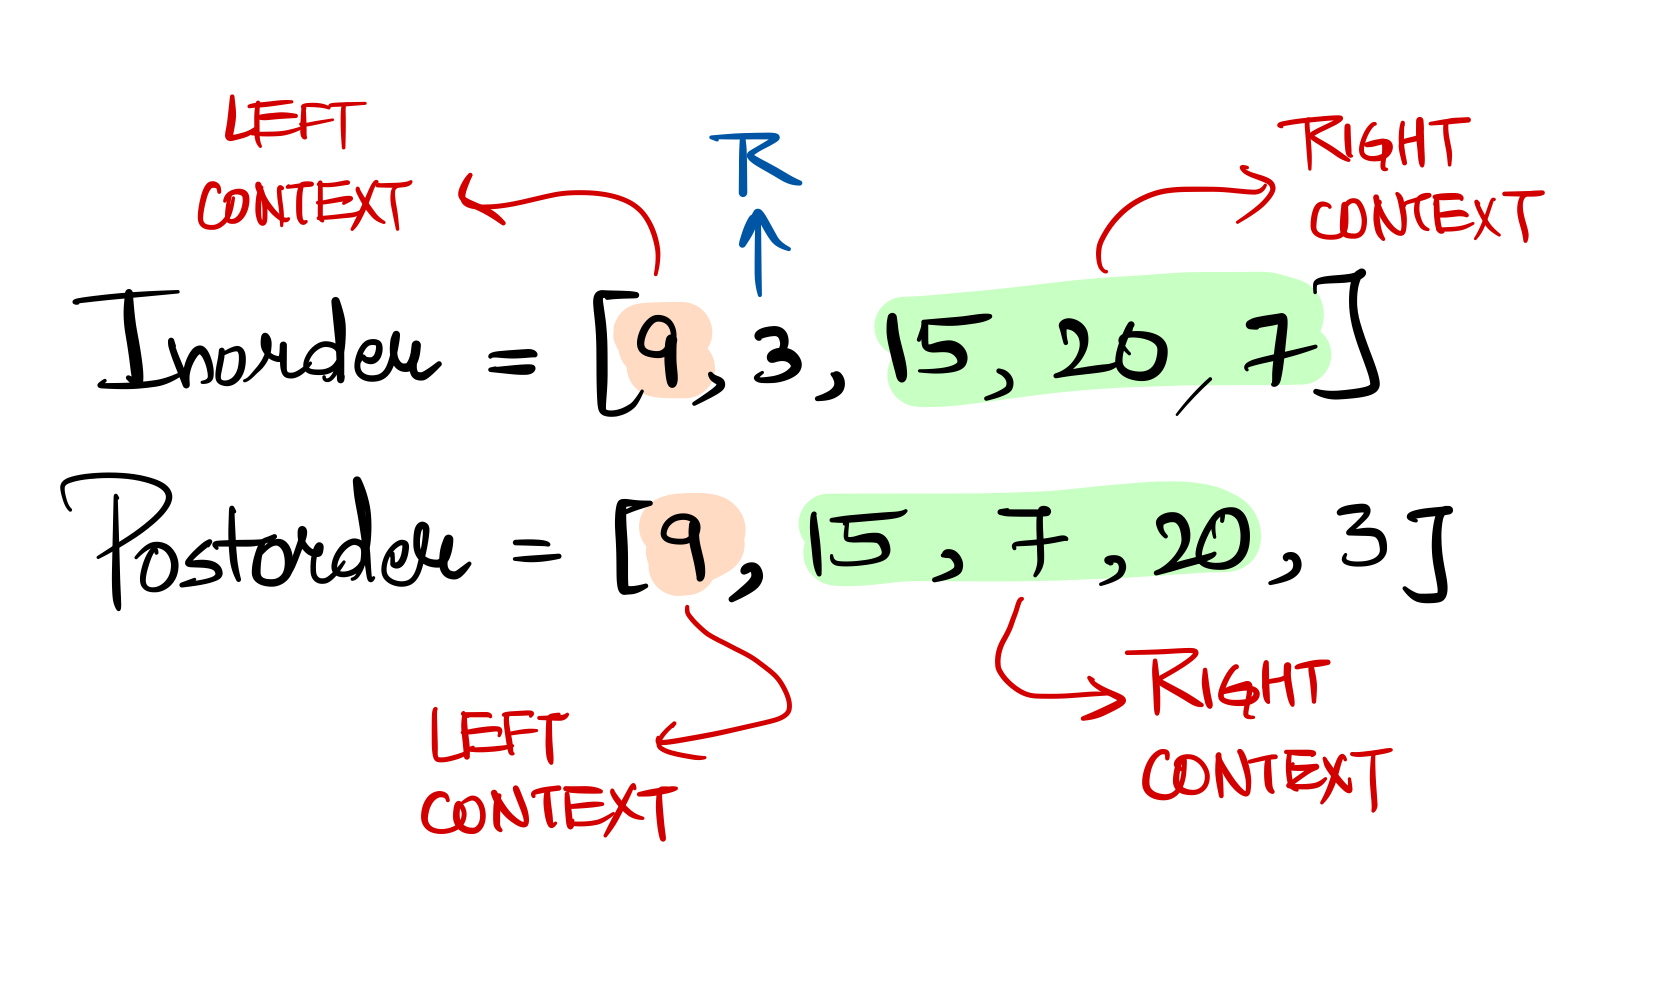 LEFT
CONTEXT
R
RIGHT
CONTEXT
Inorder = [9, 3, 15, 20, 7]
Postorder = [9, 15, 7, 20, 3]
LEFT
CONTEXT
RIGHT
CONTEXT